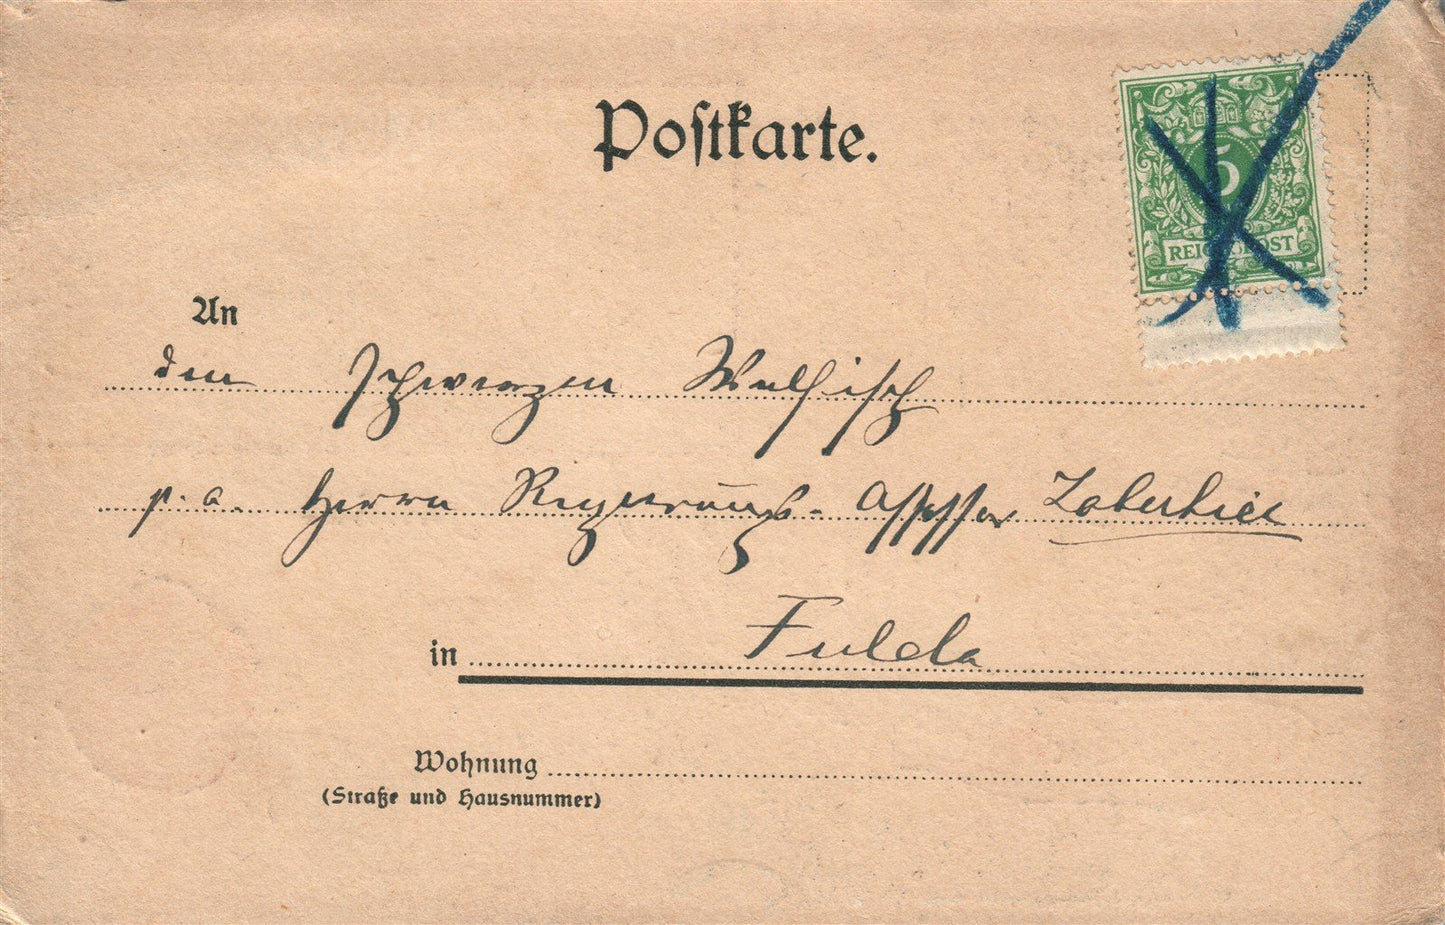 Postkarte.
5
REICHSPOST
An
den schwarzen Walfisch
p. a. Herrn Regierungs-Assessor
in Fulda
Wohnung
(Straße und Hausnummer)